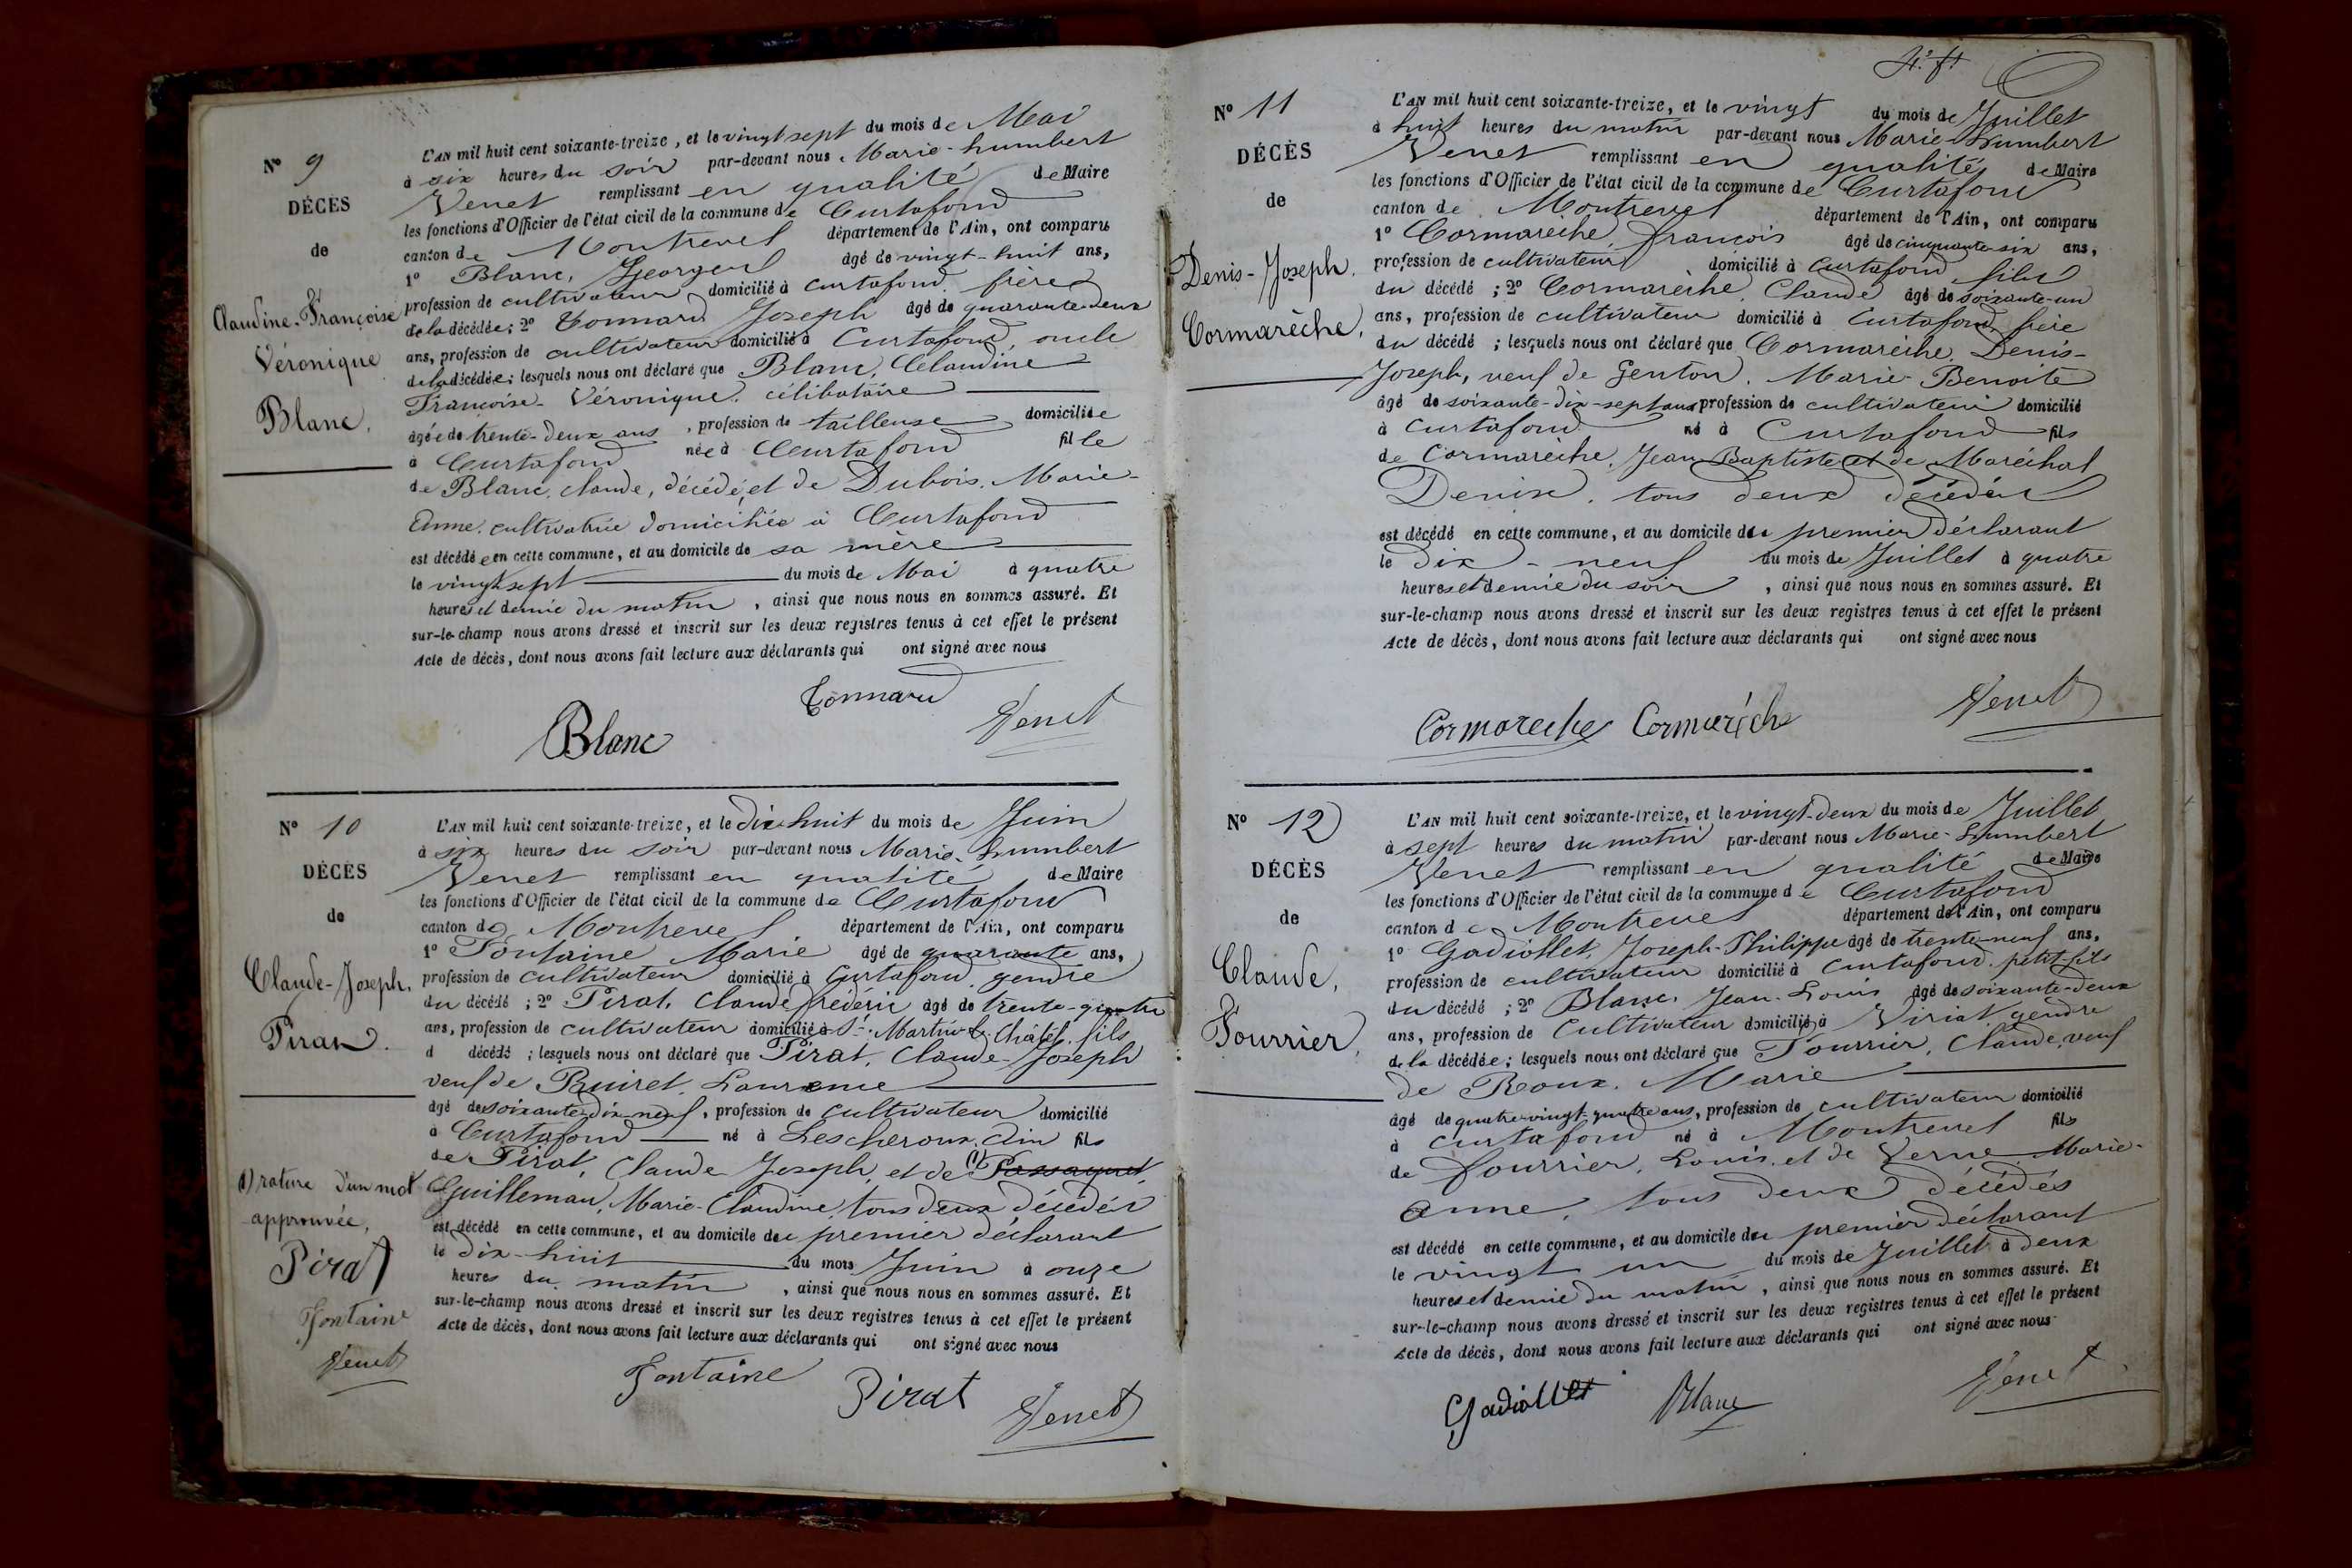 Nº 9
DÉCÈS
de
Claudine-Françoise
Véronique
Blanc.
L'AN mil huit cent soixante-treize, et le vingt sept du mois de Mai
à six heures du soir par-devant nous Marie-humbert
Venet remplissant en qualité de Maire
les fonctions d'Officier de l'état civil de la commune de Curtafond
canton de Montrevel département de l'Ain, ont comparu
1º Blanc, Georges âgé de vingt-huit ans,
profession de cultivateur domicilié à curtafond, frère
de la décédée; 2º Tonnard Joseph âgé de quarante-deux
ans, profession de cultivateur domicilié à Curtafond, oncle
de la décédée; lesquels nous ont déclaré que Blanc, Claudine
Françoise-Véronique, célibataire
âgée de trente-deux ans, profession de tailleuse domiciliée
à Curtafond née à Curtafond fille
de Blanc, claude, décédé, et de Dubois, Marie-
Anne, cultivatrice domiciliée à Curtafond
est décédée en cette commune, et au domicile de sa mère
le vingt sept du mois de Mai à quatre
heures et demie du matin, ainsi que nous nous en sommes assuré. Et
sur-le-champ nous avons dressé et inscrit sur les deux registres tenus à cet effet le présent
Acte de décès, dont nous avons fait lecture aux déclarants qui ont signé avec nous
Tonnard
Blanc
Venet
Nº 10
DÉCÈS
de
Claude-Joseph,
Pirat.
L'AN mil huit cent soixante-treize, et le dix-huit du mois de Juin
à six heures du soir par-devant nous Marie-humbert
Venet remplissant en qualité de Maire
les fonctions d'Officier de l'état civil de la commune de Curtafond
canton de Montrevel département de l'Ain, ont comparu
1º Fontaine Marie âgé de quarante ans,
profession de cultivateur domicilié à Curtafond, gendre
du décédé; 2º Pirat, Claude frédéric âgé de trente-quatre
ans, profession de cultivateur domicilié à St. Martin-le-Châtel, fils
d décédé; lesquels nous ont déclaré que Pirat, Claude-Joseph
veuf de Puiret, Laurence
âgé de soixante-dix-neuf, profession de cultivateur domicilié
à Curtafond né à Lescheroux, Ain fils
de Pirat, Claude Joseph, et de (1)
Guilleman, Marie-Claudine, tous deux décédés
est décédé en cette commune, et au domicile du premier déclarant
le dix-huit du mois Juin à onze
heures du matin, ainsi que nous nous en sommes assuré. Et
sur-le-champ nous avons dressé et inscrit sur les deux registres tenus à cet effet le présent
Acte de décès, dont nous avons fait lecture aux déclarants qui ont signé avec nous
(1) rature d'un mot
approuvée,
Pirat
Fontaine
Venet
Fontaine
Pirat
Venet
Nº 11
DÉCÈS
de
Denis-Joseph,
Cormarèche,
L'AN mil huit cent soixante-treize, et le vingt du mois de Juillet
à huit heures du matin par-devant nous Marie-humbert
Venet remplissant en qualité de Maire
les fonctions d'Officier de l'état civil de la commune de Curtafond
canton de Montrevel département de l'Ain, ont comparu
1º Cormarèche, françois âgé de cinquante-six ans,
profession de cultivateur domicilié à Curtafond fils
du décédé; 2º Cormarèche, Claude âgé de soixante-un
ans, profession de cultivateur domicilié à Curtafond, frère
du décédé; lesquels nous ont déclaré que Cormarèche, Denis-
Joseph, veuf de Genton, Marie-Benoite
âgé de soixante-dix-sept ans profession de cultivateur domicilié
à Curtafond né à Curtafond fils
de Cormarèche, Jean-Baptiste et de Maréchal
Denise, tous deux décédés
est décédé en cette commune, et au domicile du premier déclarant
le dix-neuf du mois de Juillet à quatre
heures et demie du soir, ainsi que nous nous en sommes assuré. Et
sur-le-champ nous avons dressé et inscrit sur les deux registres tenus à cet effet le présent
Acte de décès, dont nous avons fait lecture aux déclarants qui ont signé avec nous
Cormareche Cormarèche
Venet
Nº 12
DÉCÈS
de
Claude,
Fourrier,
L'AN mil huit cent soixante-treize, et le vingt-deux du mois de Juillet
à sept heures du matin par-devant nous Marie-humbert
Venet remplissant en qualité de Maire
les fonctions d'Officier de l'état civil de la commune de Curtafond
canton de Montrevel département de l'Ain, ont comparu
1º Gadiollet, Joseph-Philippe âgé de trente-neuf ans,
profession de cultivateur domicilié à Curtafond, petit-fils
du décédé; 2º Blanc, Jean-Louis âgé de soixante-deux
ans, profession de Cultivateur domicilié à Viriat gendre
de la décédée; lesquels nous ont déclaré que Fourrier, Claude, veuf
de Roux, Marie
âgé de quatre-vingt-quatre ans, profession de cultivateur domicilié
à curtafond né à Montrevel fils
de fourrier, Louis, et de Verne Marie-
anne, tous deux décédés
est décédé en cette commune, et au domicile du premier déclarant
le vingt un du mois de Juillet à deux
heures et demie du matin, ainsi que nous nous en sommes assuré. Et
sur-le-champ nous avons dressé et inscrit sur les deux registres tenus à cet effet le présent
Acte de décès, dont nous avons fait lecture aux déclarants qui ont signé avec nous
Gadiollet
Blanc
Venet